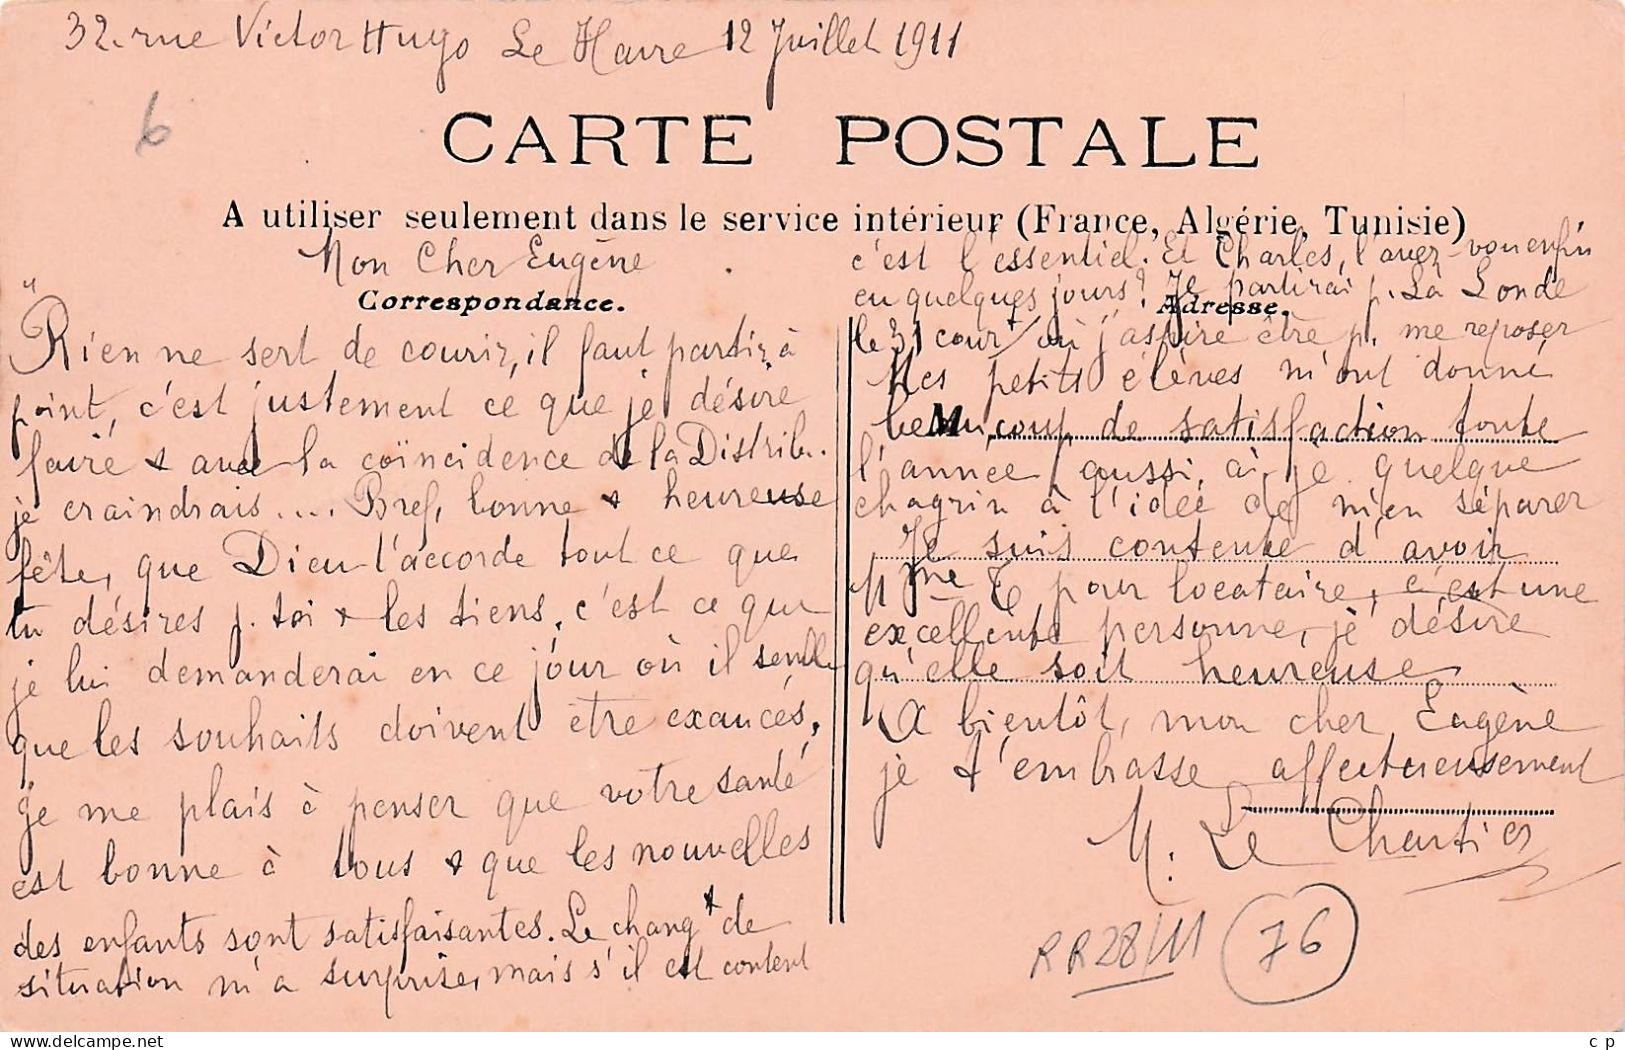 32. rue Victor Hugo Le Havre 12 Juillet 1911
6
CARTE POSTALE
A utiliser seulement dans le service intérieur (France, Algérie, Tunisie)
Mon Cher Eugène
Correspondance.
"Rien ne sert de courir, il faut partir à
point, c'est justement ce que je désire
faire & avec la coïncidence de la Distrib..
je craindrais .... Bref, bonne & heureuse
fête, que Dieu t'accorde tout ce que
tu désires p. toi & les tiens, c'est ce que
je lui demanderai en ce jour où il semble
que les souhaits doivent être exaucés.
Je me plais à penser que votre santé
est bonne à tous & que les nouvelles
des enfants sont satisfaisantes. Le changt de
situation m'a surprise, mais s'il est content
c'est l'essentiel. Et Charles, l'avez-vous enfin
eu quelques jours? Je partirai p. La Londe
Adresse.
le 31 court où j'aspire être p. me reposer
Mes petits élèves m'ont donné
M
beaucoup de satisfaction toute
l'année, aussi, ai-je quelque
chagrin à l'idée de m'en séparer
Je suis contente d'avoir
Mme T pour locataire, c'est une
excellente personne, je désire
qu'elle soit heureuse
A bientôt, mon cher Eugène
je t'embrasse affectueusement
M. Le Chartier
RR28/11 76
delcampe.net
c p